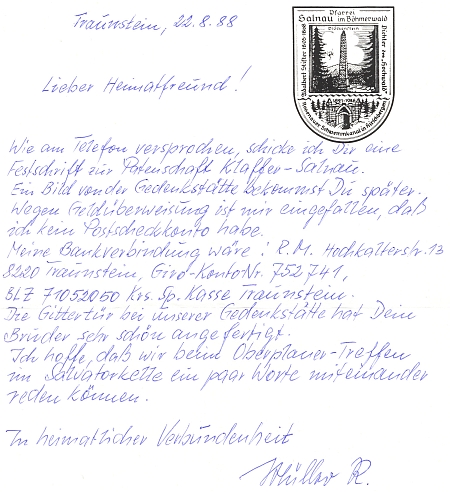 Traunstein, 22.8.88
Pfarrei
Salnau im Böhmerwald
Adalbert Stifter 1805-1868
Dichter des "Hochwald"
Lieber Heimatfreund!
Wie am Telefon versprochen, schicke ich Dir eine
Festschrift zur Patenschaft Klaffer-Salnau.
Ein Bild von der Gedenkstätte bekommst Du später.
Wegen Geldüberweisung ist mir eingefallen, daß
ich kein Postscheckkonto habe.
Meine Bankverbindung wäre: R.M. Hochkalterstr. 13
8220 Traunstein, Giro-Konto Nr. 752741,
BLZ 71052050 Krs. Sp. Kasse Traunstein.
Die Gittertür bei unserer Gedenkstätte hat Dein
Bruder sehr schön angefertigt.
Ich hoffe, daß wir beim Oberplaner-Treffen
im Salvatorkeller ein paar Worte miteinander
reden können.
In heimatlicher Verbundenheit
Müller R.